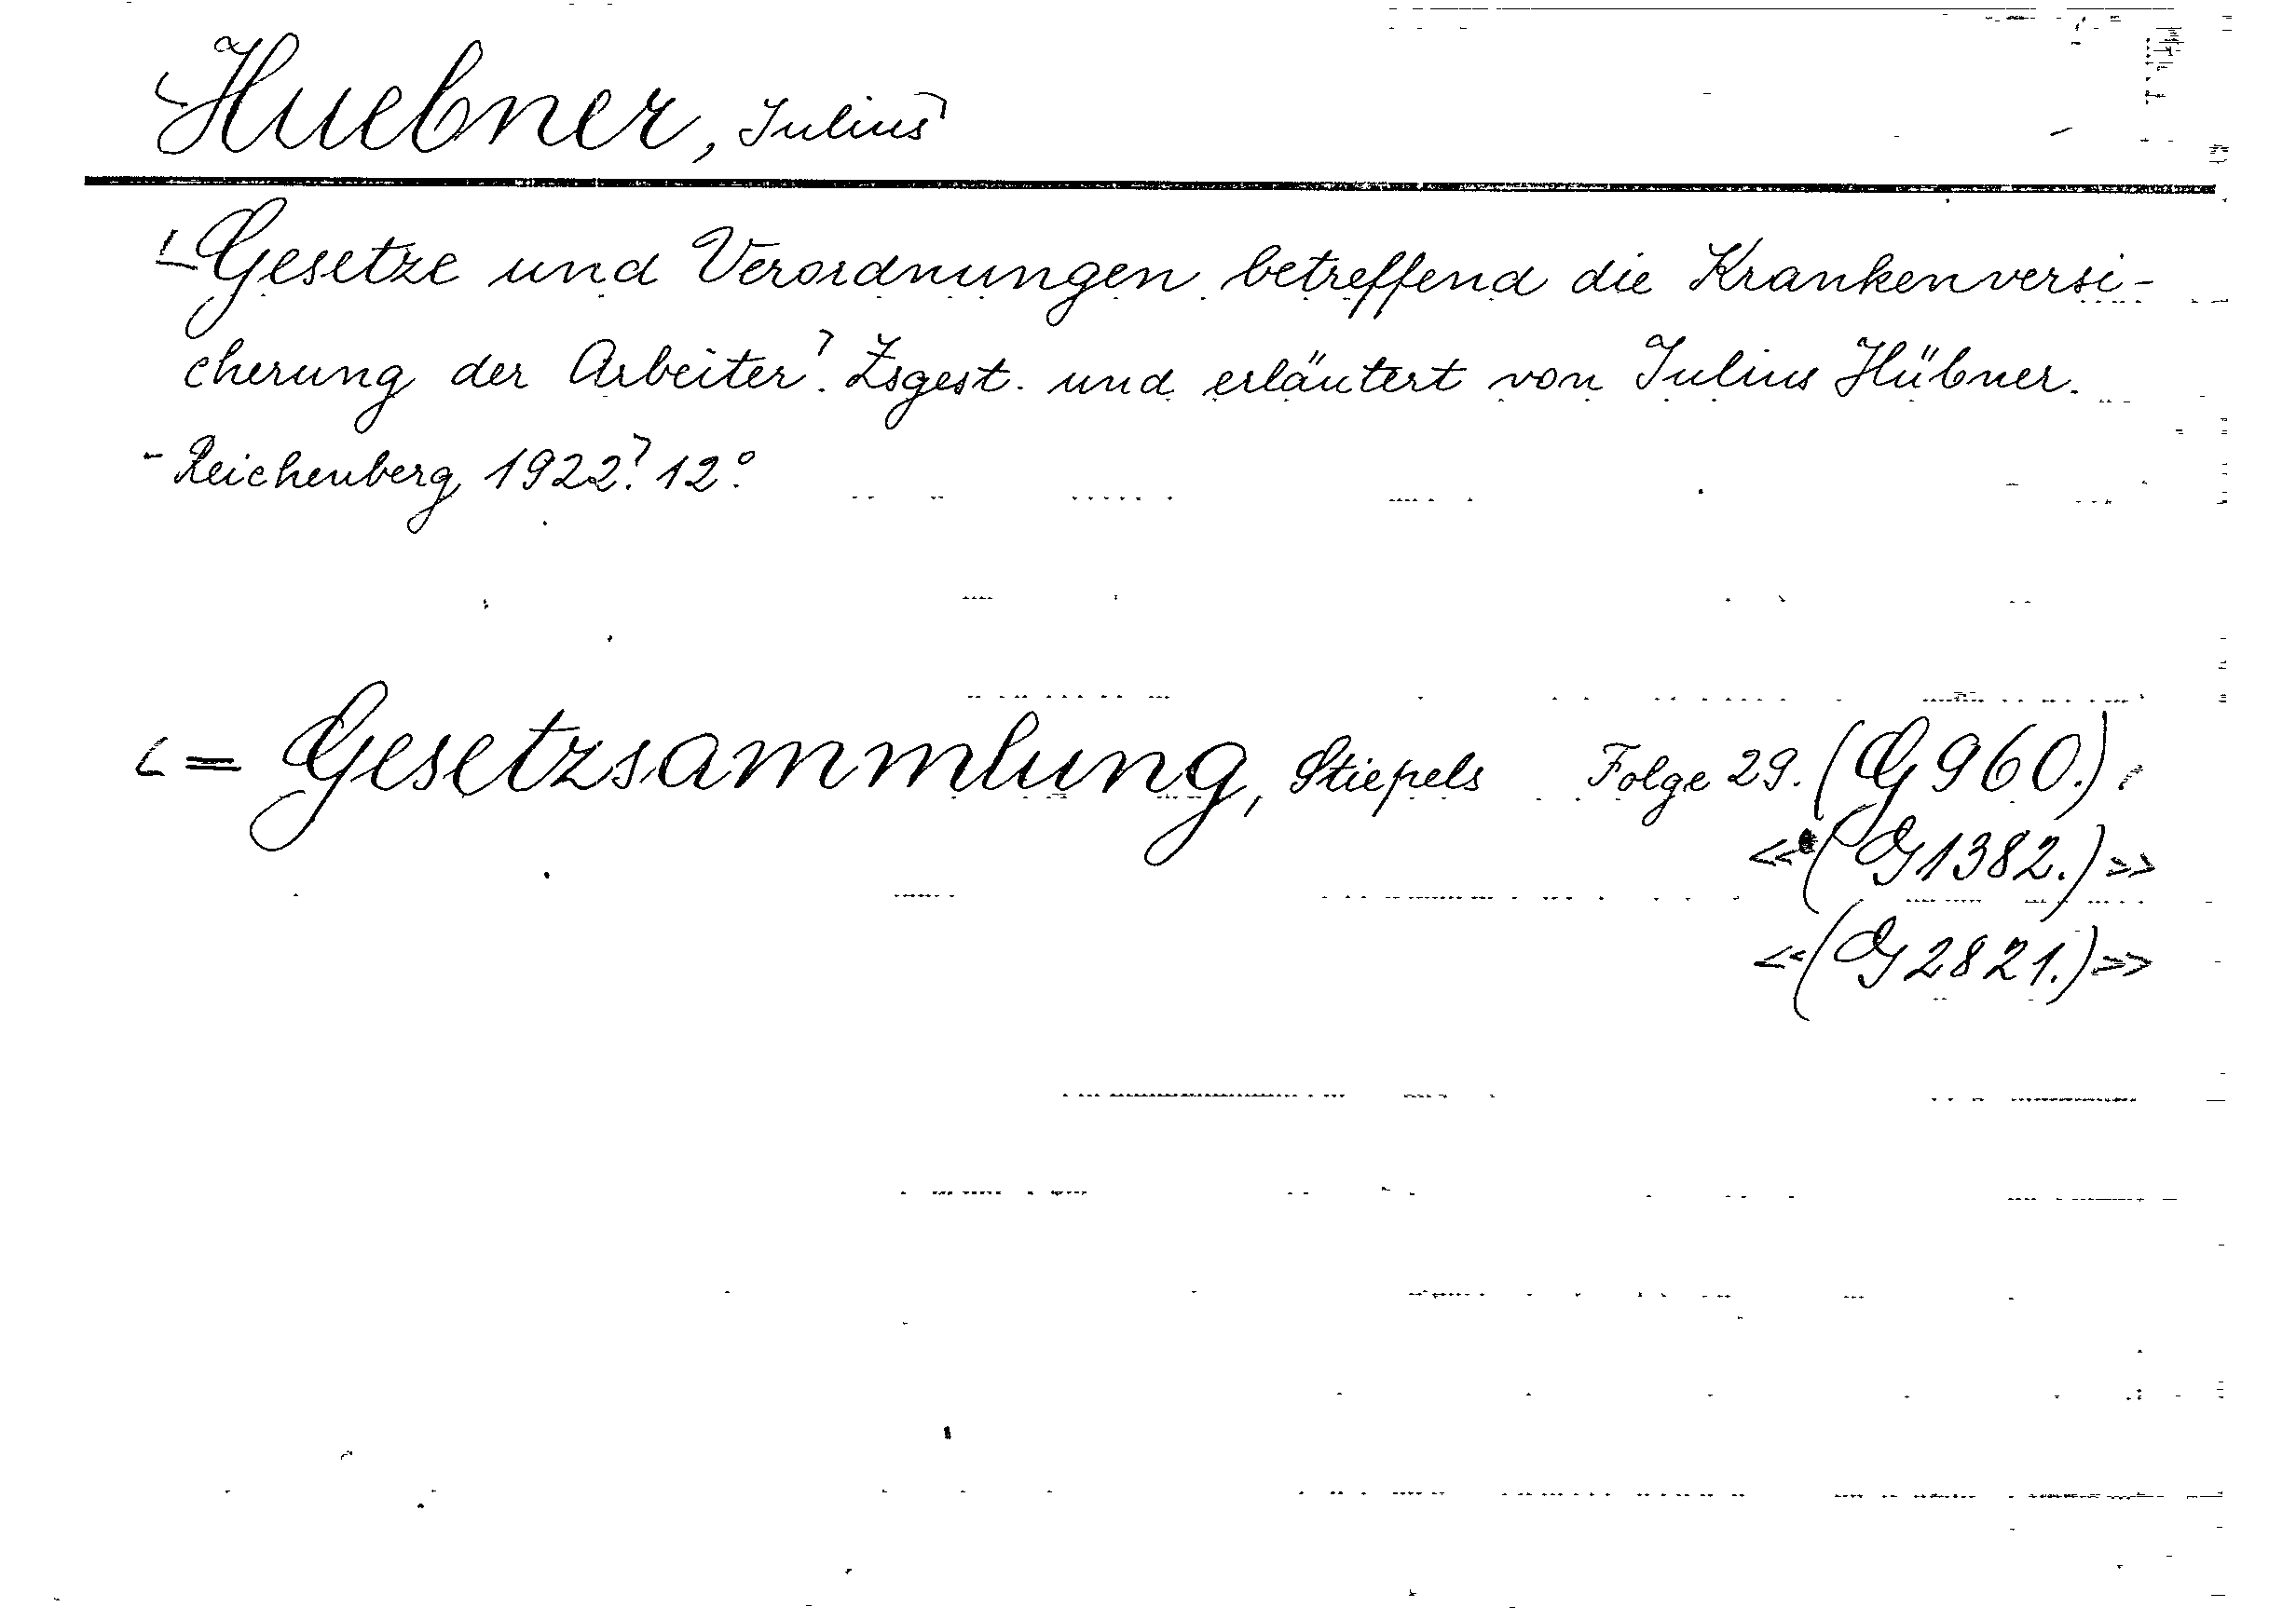 Huebner, Julius
Gesetze und Verordnungen betreffend die Krankenversi-
cherung der Arbeiter. Zsgest. und erläutert von Julius Hübner.
- Reichenberg 1922. 12°.
= Gesetzsammlung, Stiepels Folge 29. (G 960.)
«(G 1382.)»
«(G 2821.)»